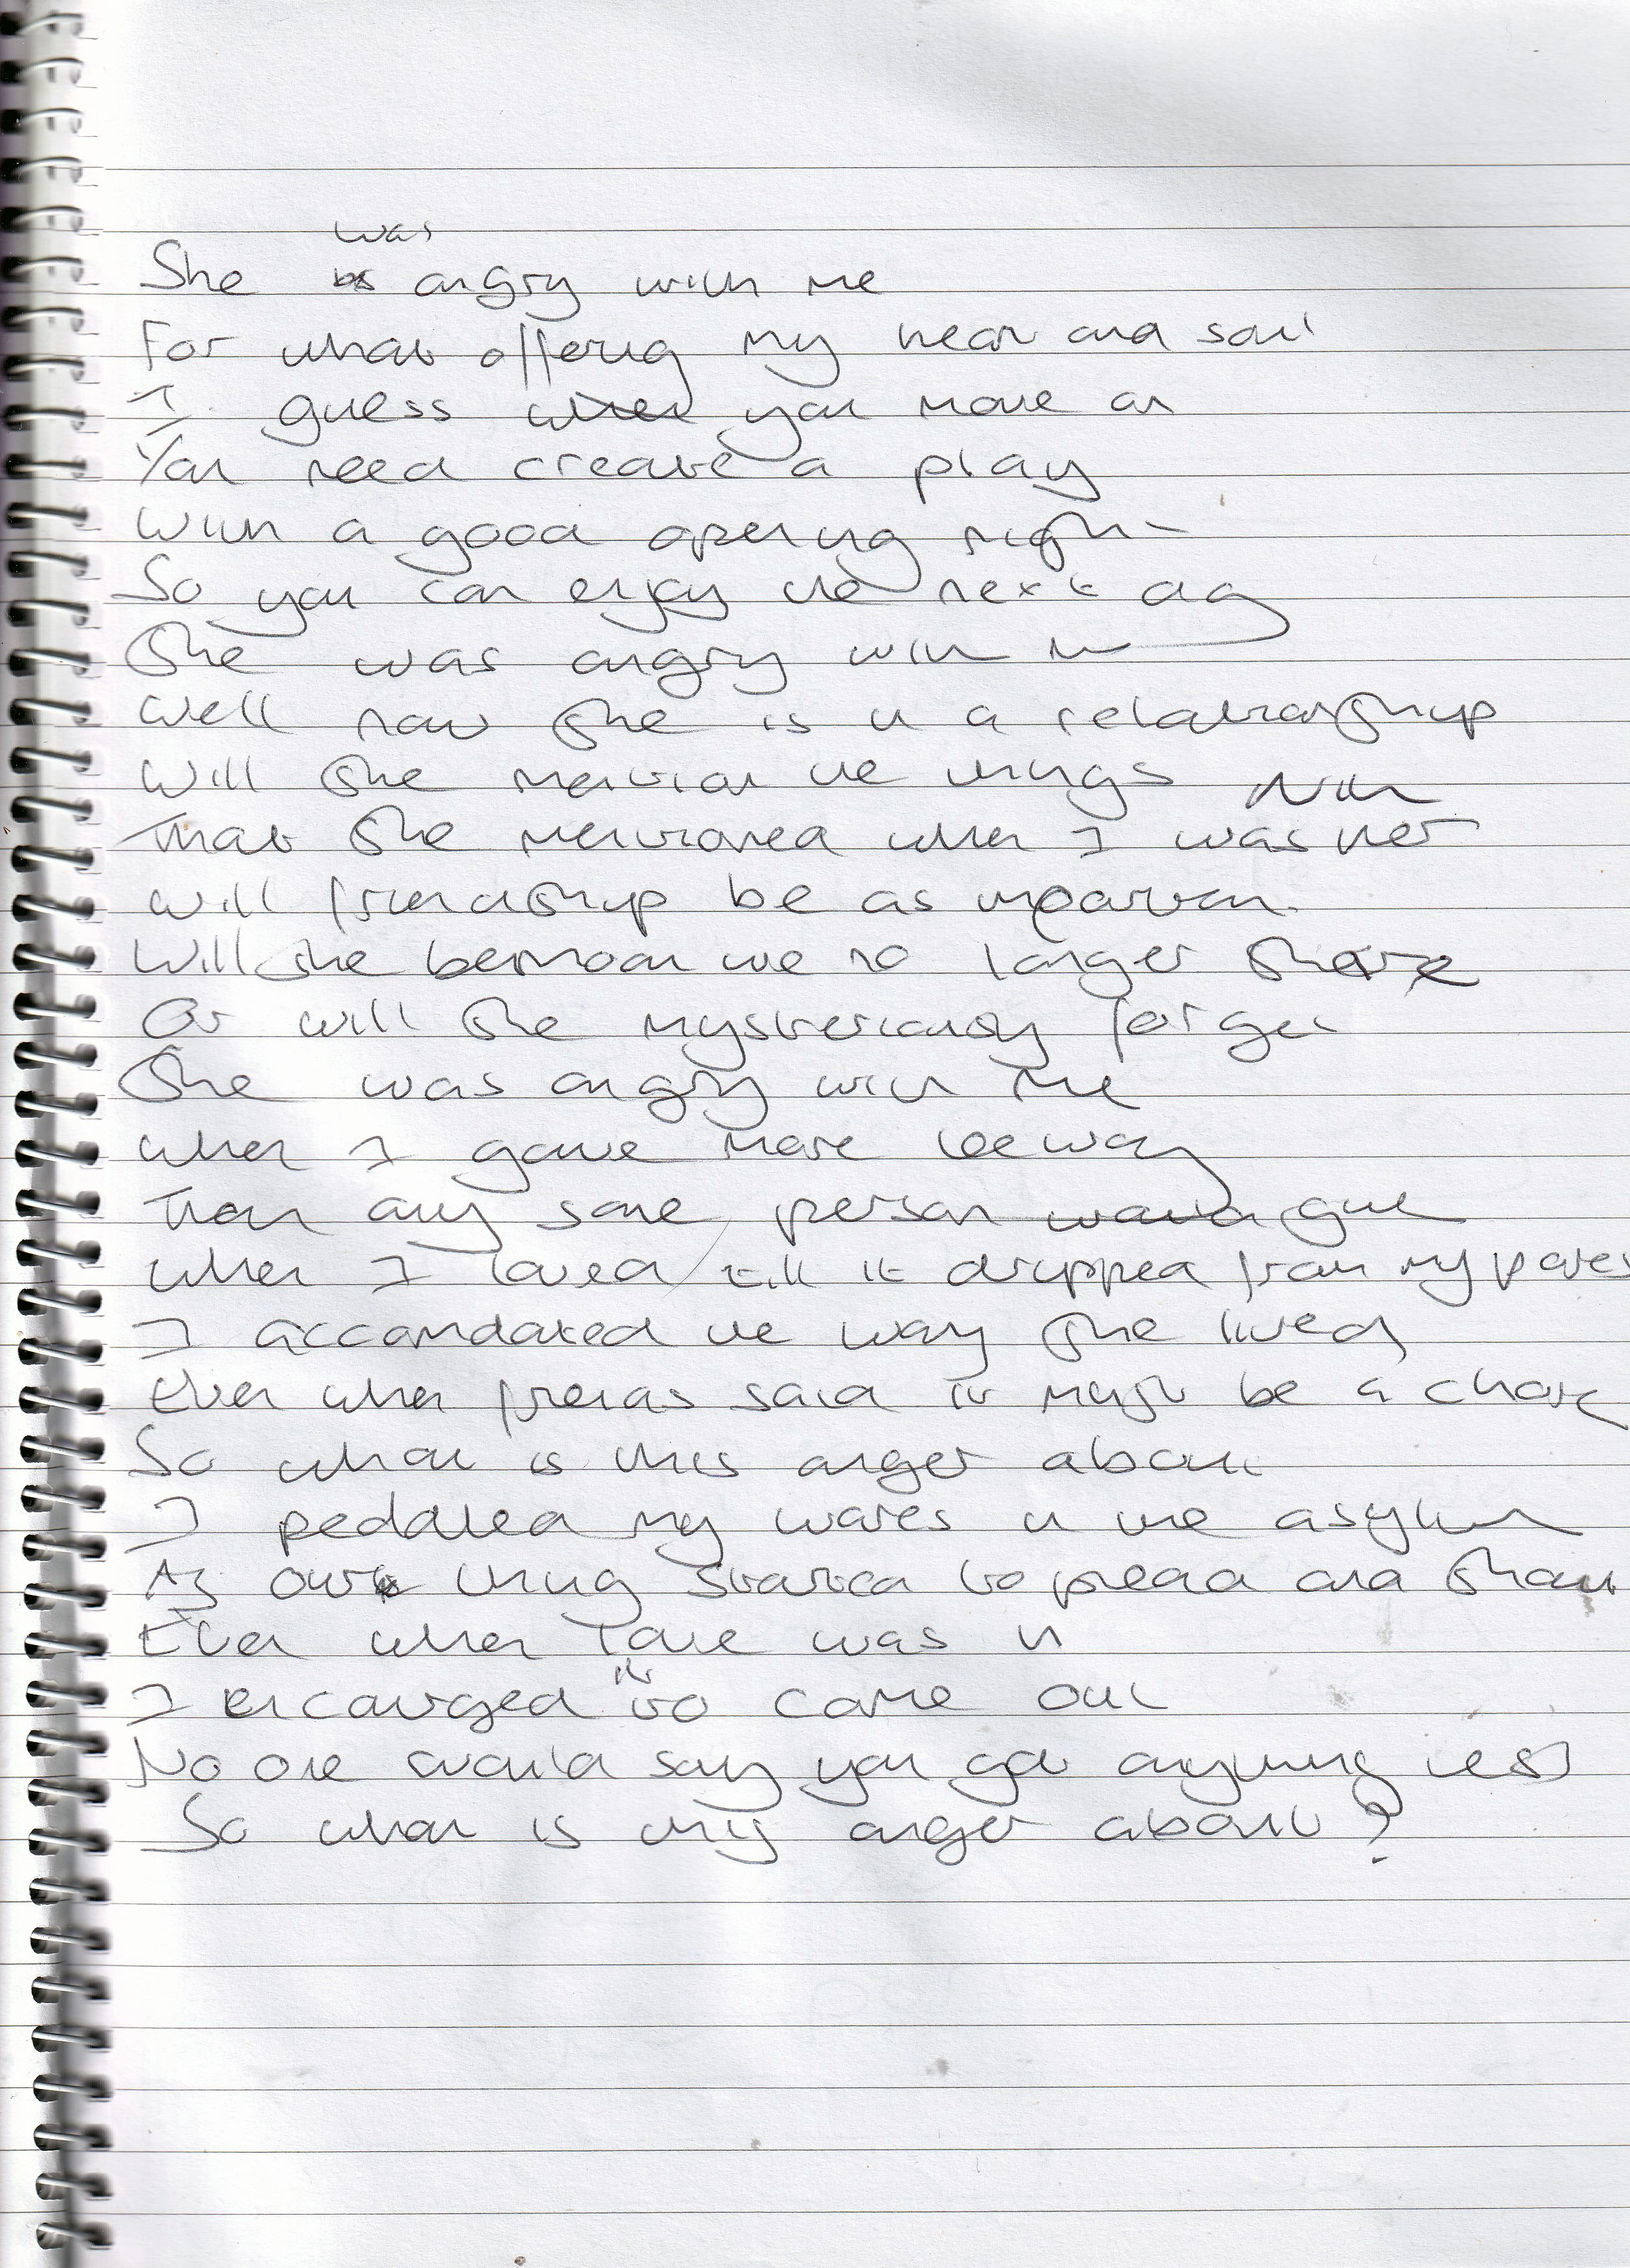 She was angry with me
For what offering my heart and soul
I guess when you move on
You need create a play
With a good opening night
So you can enjoy the next day
She was angry with me
Well now she is in a relationship
Will she mention the things
That she mentioned when I was her
Will friendship be as important
Will she bemoan we no longer share
Or will she mysteriously forget
She was angry with me
When I gave more leeway
Than any sane person would give
When I loved till it dripped from my pores
I accomdated the way she lived
Even when friends said it might be a chore
So what is this anger about
I pedalled my wares in the asylum
As our thing started to plead and shout
Even when love was in
I encourged it to come out
No one would say you got anything less
So what is this anger about?